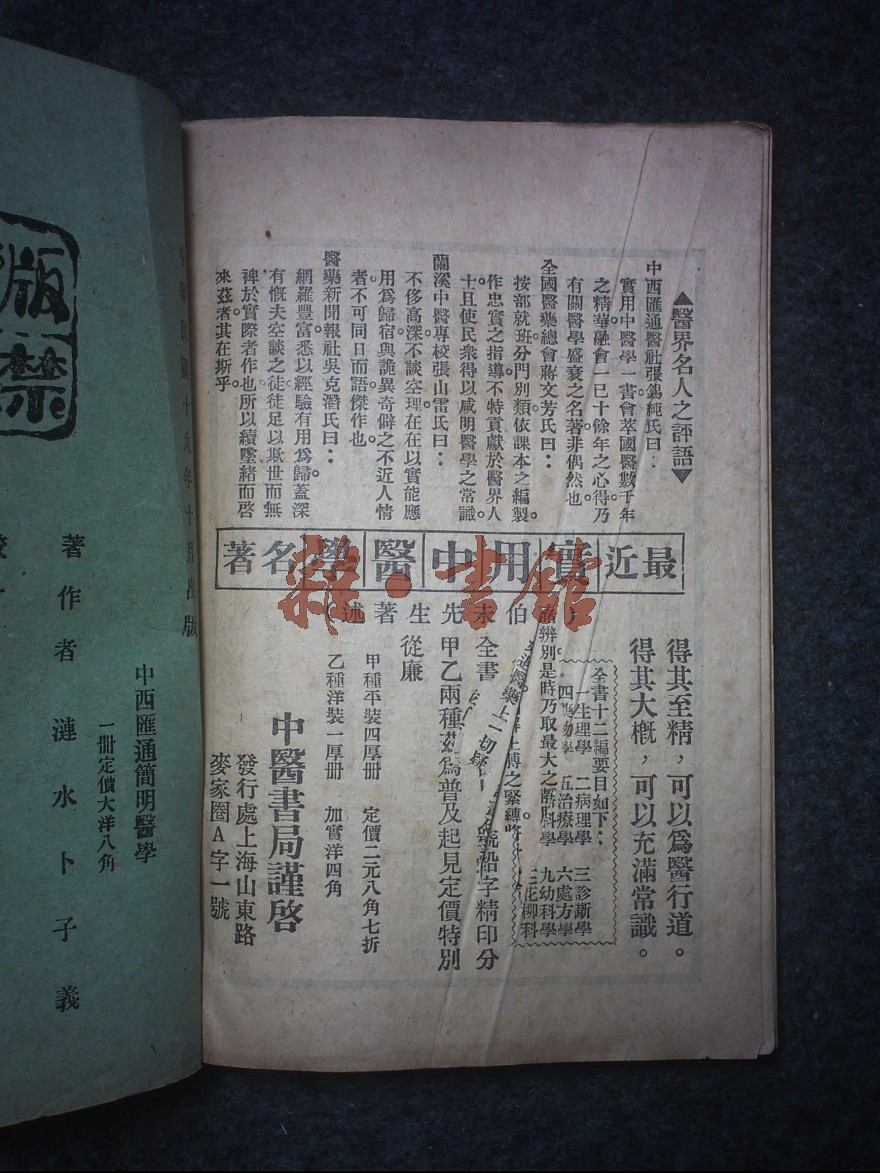 ▲醫界名人之評語▼
中西匯通醫社張錫純氏曰：
實用中醫學一書會萃國醫數千年
之精華融會一己十餘年之心得乃
有關醫學盛衰之名著非偶然也。
全國醫藥總會蔣文芳氏曰：
按部就班分門別類依課本之編製
作忠實之指導不特貢獻於醫界人
士且使民衆得以咸明醫學之常識。
蘭溪中醫專校張山雷氏曰：
不侈高深不談空理在在以實能應
用爲歸宿與詭異奇僻之不近人情
者不可同日而語傑作也。
醫藥新聞報社吳克潛氏曰：
網羅豐富悉以經驗有用爲歸蓋深
有慨夫空談之徒徒足以欺世而無
裨於實際者作也所以續墜緒而啓
來茲者其在斯乎。
最近實用中醫學名著
伯未先生著述
得其至精，可以爲醫行道。
得其大概，可以充滿常識。
全書十二編要目如下：
一生理學 二病理學 三診斷學
五治療學 六處方學
科學 九幼科學
花柳科
辨別是時乃取最大之
醫藥上一切疑
之緊縛
全書 號鉛字精印分
甲乙兩種茲爲普及起見定價特別
從廉
甲種平裝四厚冊 定價二元八角七折
乙種洋裝一厚冊 加實洋四角
中醫書局謹啓
發行處上海山東路
麥家圈A字一號
版
禁
國十九年十月出版
中西匯通簡明醫學
一冊定價大洋八角
著作者 漣水卜子義